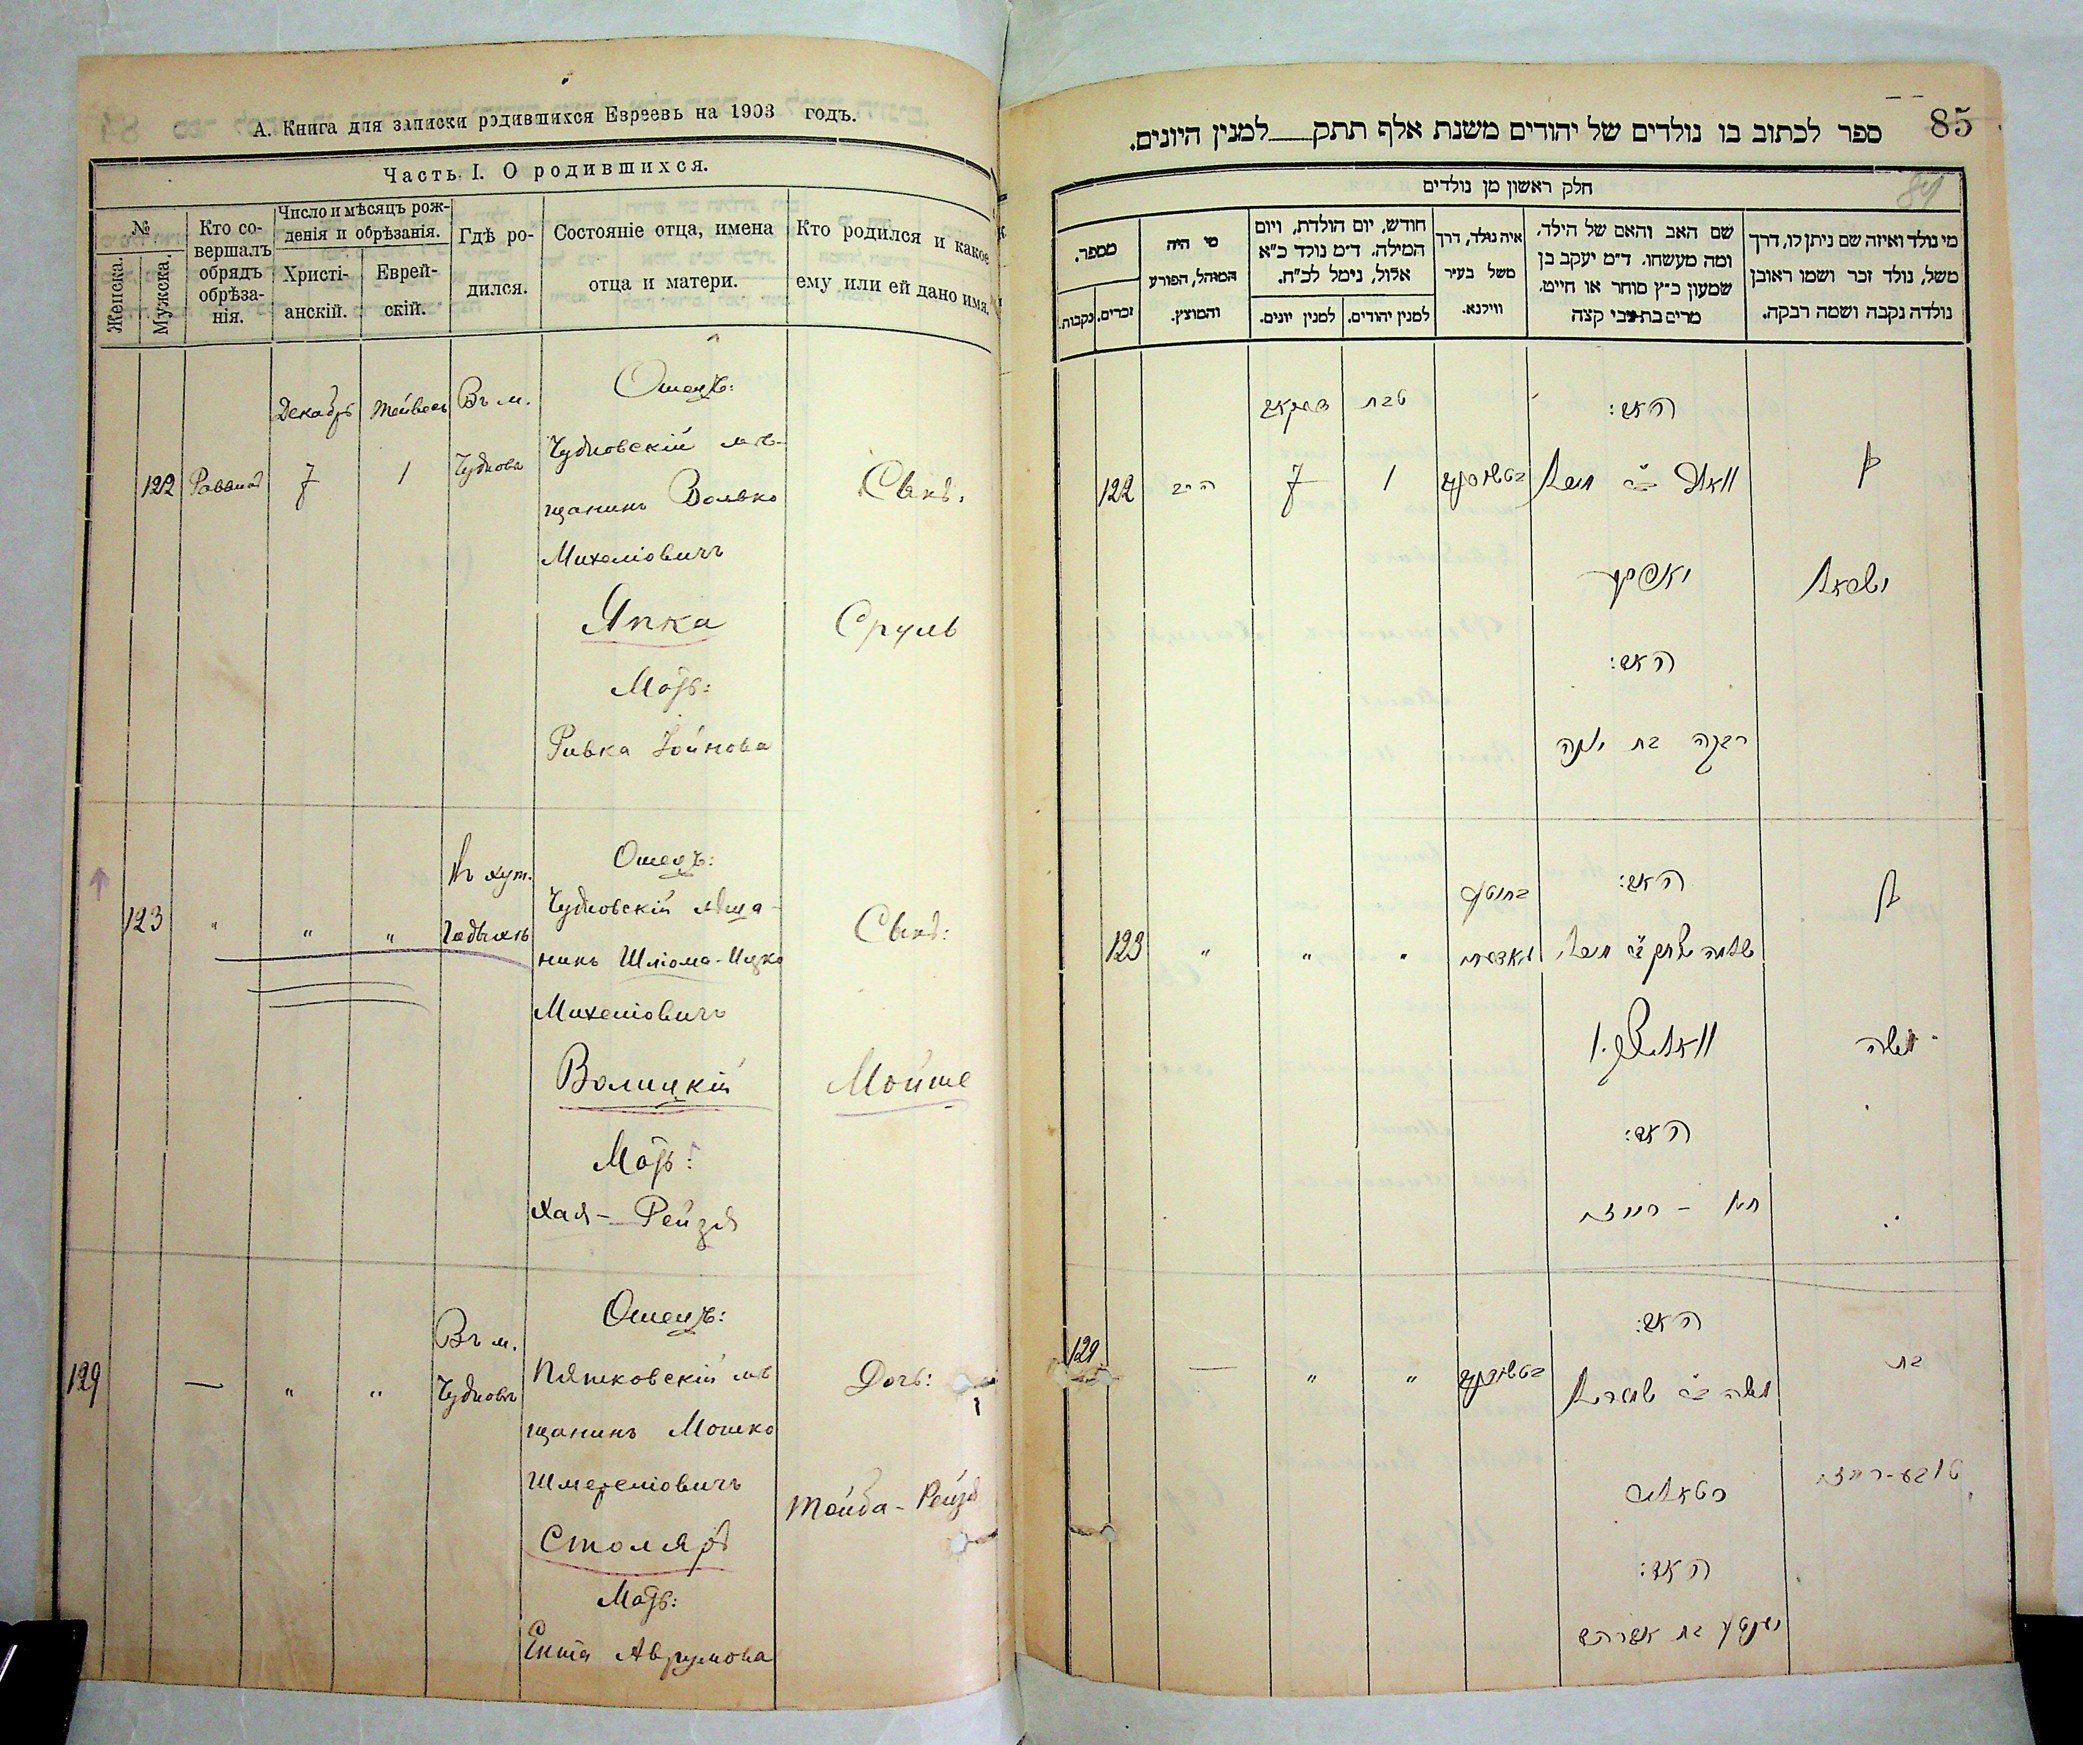 А. Книга для записки родившихся Евреевъ на 1903 годъ.
Часть I. О родившихся.
№
Женска.
Мужска.
Кто со-
вершалъ
обрядъ
обрѣза-
нія.
Число и мѣсяцъ рож-
денія и обрѣзанія.
Христі-
анскій.
Еврей-
скій.
Гдѣ ро-
дился.
Состояніе отца, имена
отца и матери.
Кто родился и какое
ему или ей дано имя.
122
Раввинъ
Декабрь
7
Тейвесъ
1
Въ м.
Чудновъ
Отецъ:
Чудновскій мѣ-
щанинъ Волько
Михеліовичъ
Япка
Мать:
Ривка Іойнова
Сынъ.
Сруль
123
"
"
"
Въ хут.
Отецъ:
Чудновскій мѣща-
нинъ Шліома-Ицко
Михеліовичъ
Волицкій
Мать:
Хая-Рейзя
Сынъ:
Мойше
129
—
"
"
Въ м.
Чудновъ
Отецъ:
Пятковскій мѣ
щанинъ Мошко
Шмереліовичъ
Столяръ
Мать:
Ента Аврумова
Дочь:
Тойба-Рейзя
85
84
ספר לכתוב בו נולדים של יהודים משנת אלף תתק למנין היונים.
חלק ראשון מן נולדים
מספר.
זכרים.
נקבות.
מי היה
המוהל, הפורע
והמוצץ.
חודש, יום הולדת, ויום
המילה. ד״מ נולד כ״א
אלול, נימל לכ״ח.
למנין יונים.
למנין יהודים.
איה נולד, דרך
משל בעיר
ווילנא.
שם האב והאם של הילד,
ומה מעשהו. ד״מ יעקב בן
שמעון כ״ץ סוחר או חייט.
מרים בת צבי קצה
מי נולד ואיזה שם ניתן לו, דרך
משל, נולד זכר ושמו ראובן
נולדה נקבה ושמה רבקה.
122
הרב
דעקאב
7
טבת
1
בטשודנוב
האב:
וואלף ב״ר מיכל
יאפקע
האם:
רבקה בת יונה
בן
ישראל
123
"
"
"
האב:
שלמה יצחק ב״ר מיכל
וואליצקי
האם:
חיה - רייזא
בן
משה
129
—
"
"
בטשודנוב
האב:
משה ב״ר שמערל
סטאליאר
האם:
יענטע בת אברהם
בת
טובא-רייזא